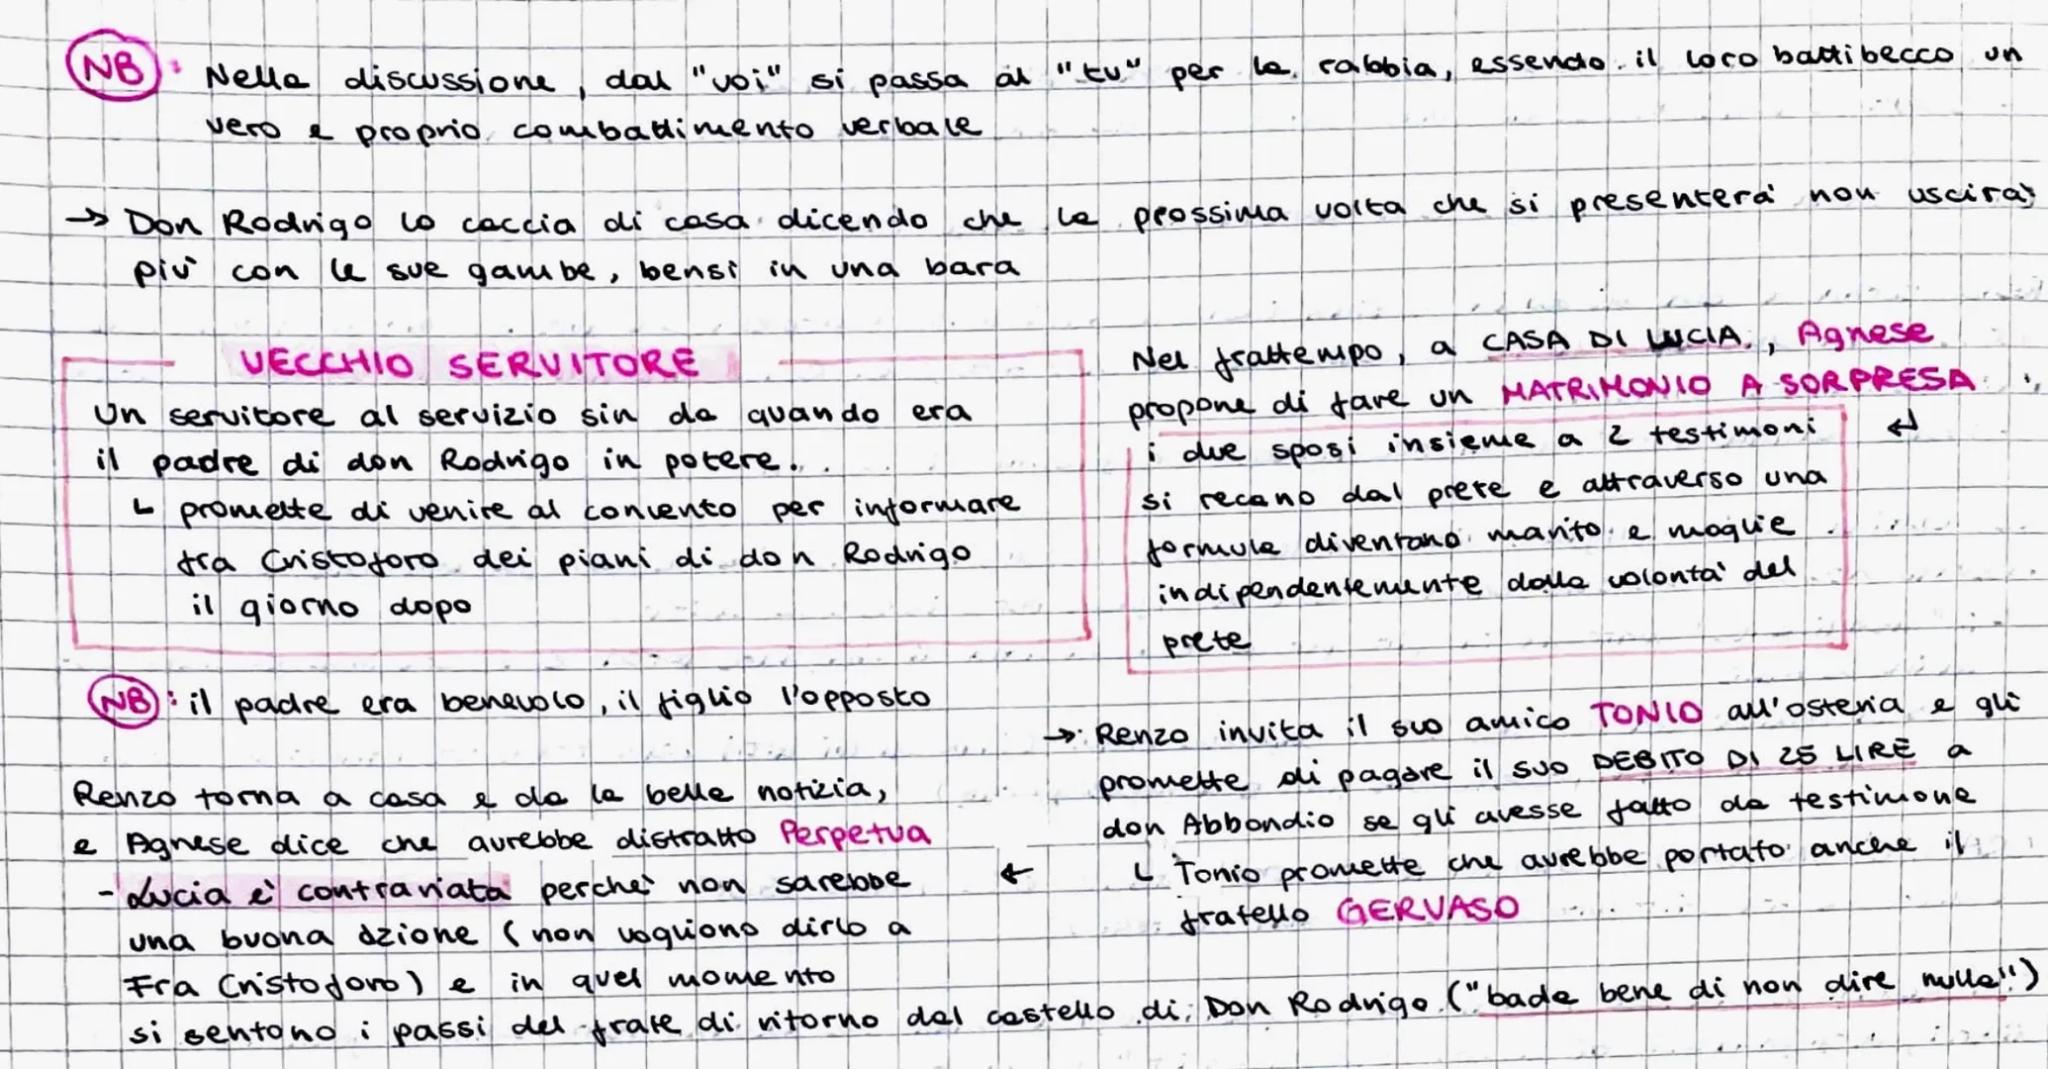 NB: Nella discussione, dal "voi" si passa al "tu" per la rabbia, essendo il loro battibecco un
vero e proprio combattimento verbale
→ Don Rodrigo lo caccia di casa dicendo che la prossima volta che si presenterà non uscirà
più con le sue gambe, bensì in una bara
VECCHIO SERVITORE
Un servitore al servizio sin da quando era
il padre di don Rodrigo in potere.
↳ promette di venire al convento per informare
fra Cristoforo dei piani di don Rodrigo
il giorno dopo
NB: il padre era benevolo, il figlio l'opposto
Nel frattempo, a CASA DI LUCIA, Agnese
propone di fare un MATRIMONIO A SORPRESA
i due sposi insieme a 2 testimoni ↲
si recano dal prete e attraverso una
formula diventano marito e moglie
indipendentemente dalla volontà del
prete
→ Renzo invita il suo amico TONIO all'osteria e gli
promette di pagare il suo DEBITO DI 25 LIRE a
don Abbondio se gli avesse fatto da testimone
↳ Tonio promette che avrebbe portato anche il
fratello GERVASO
←
Renzo torna a casa e da la bella notizia,
e Agnese dice che avrebbe distratto Perpetua
- Lucia è contrariata perché non sarebbe
una buona azione (non vogliono dirlo a
Fra Cristoforo) e in quel momento
si sentono i passi del frate di ritorno dal castello di Don Rodrigo ("bada bene di non dire nulla")